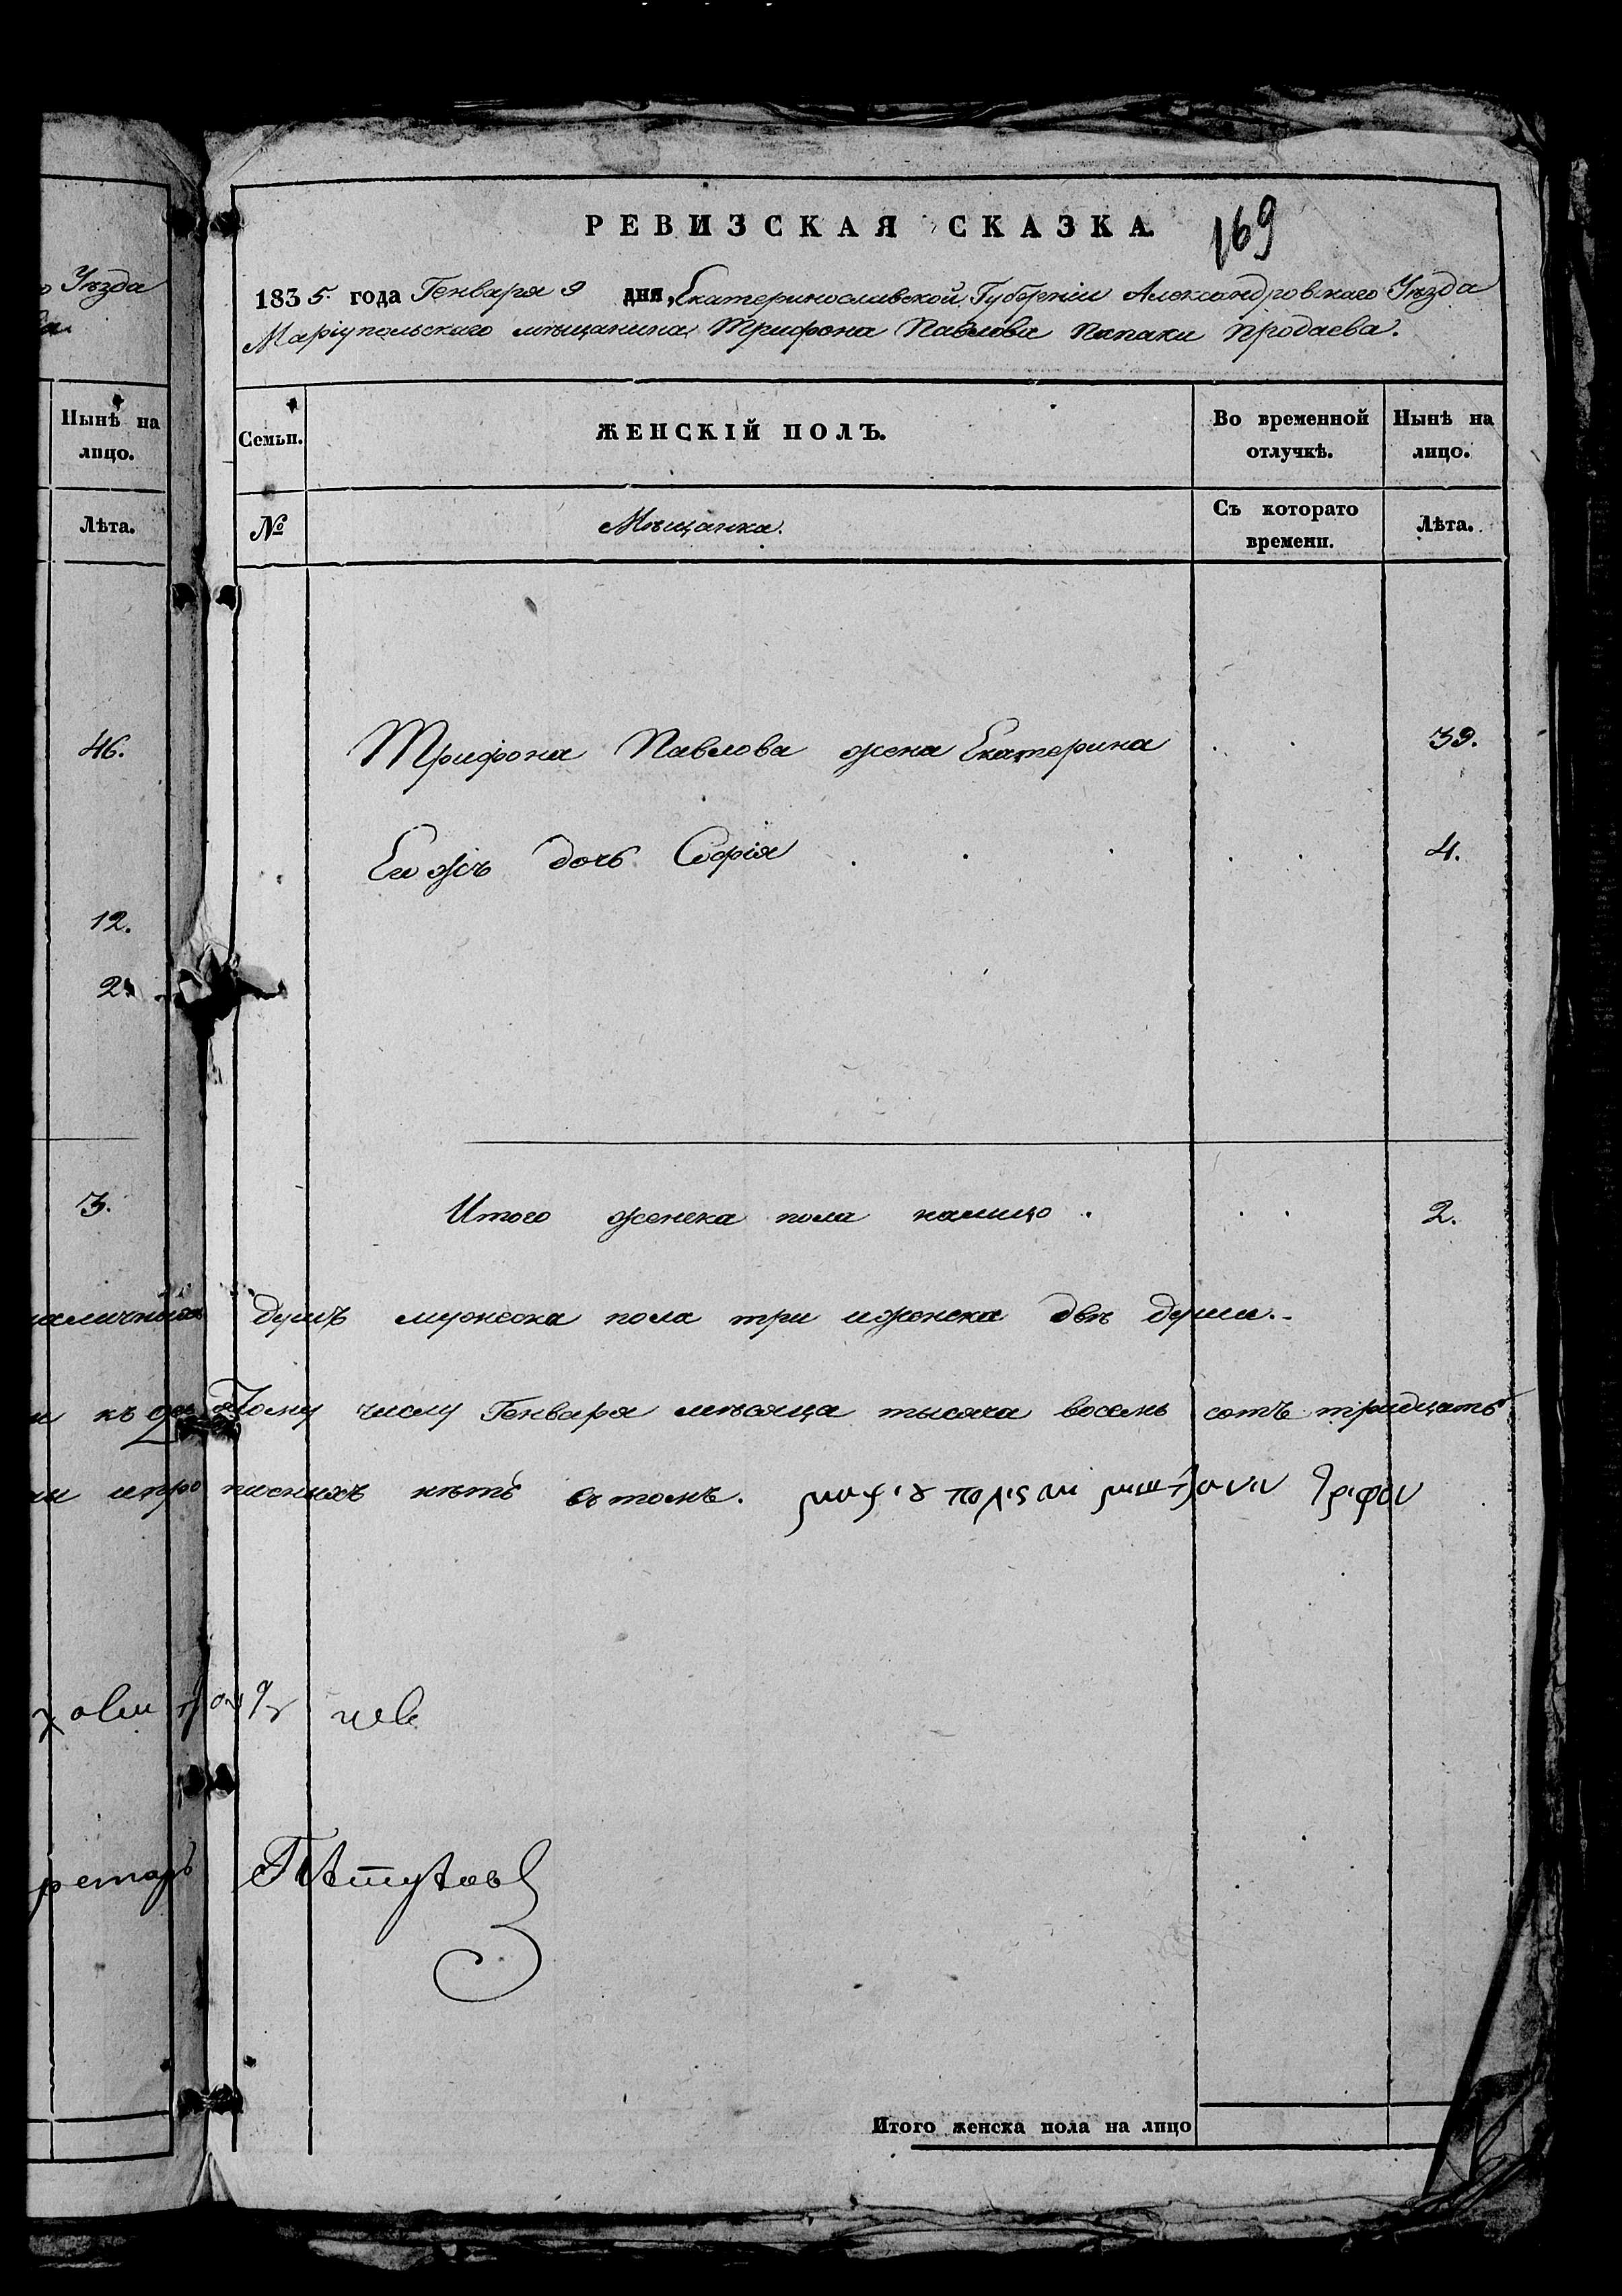 Уѣзда
Нынѣ на
лицо.
Лѣта.
46.
12.
2.
3.
РЕВИЗСКАЯ СКАЗКА.
169
1835. года Генваря 9 дня, Екатеринославской Губерніи Александровскаго Уѣзда
Маріупольскаго мѣщанина Трифона Павлова Папаки Продаева.
Семьи. ЖЕНСКІЙ ПОЛЪ. Во временной отлучкѣ. Нынѣ на лицо.
№ Мѣщанка. Съ которато времени. Лѣта.
Трифона Павлова жена Екатерина . . 39.
Ею жъ дочь Софія . . . . . 4.
Итого женска пола налицо . . . 2.
наличныхъ душъ мужеска пола три и женска двѣ души.
къ девятому числу Генваря мѣсяца тысяча восемь сотъ тридцать
и про писныхъ нѣтъ въ томъ.
ретарь
Итого женска пола на лицо